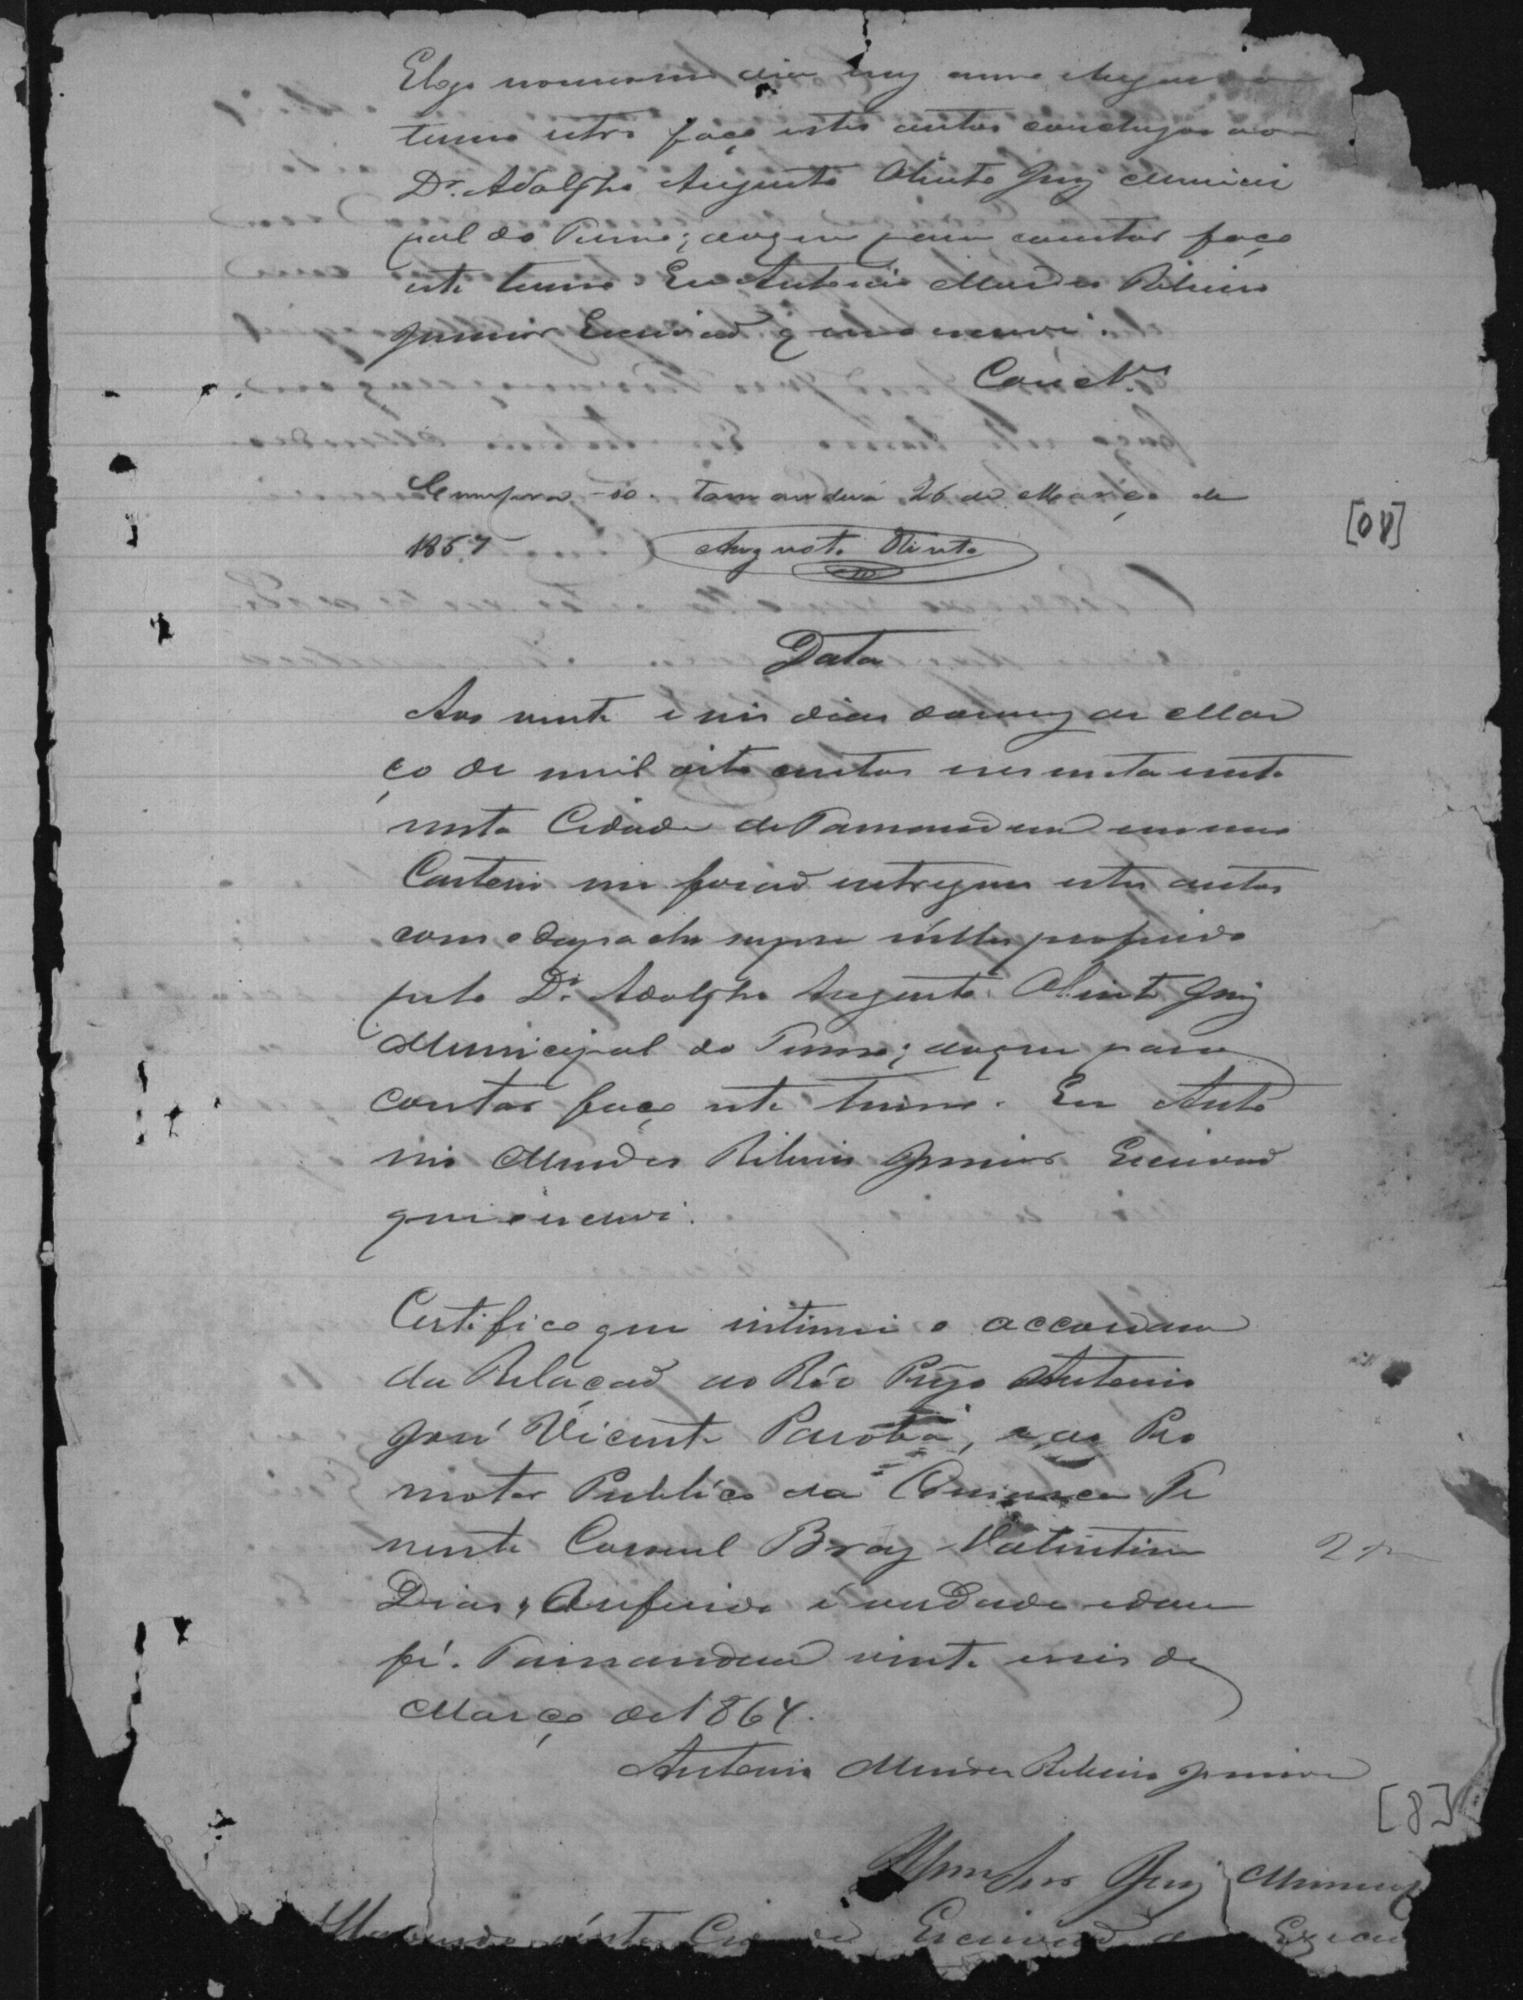 E logo no mesmo dia mez anno e lugar no
termo retro faço estes autos conclusos ao
Dr. Adolpho Augusto Olinto Juiz Munici
pal do Termo; do que para constar faço
este termo. Eu Antonio Mendes Ribeiro
Junior Escrivaõ q o escrevi.
Concl.os
Cumpra-se. Tamanduá 26 de Março de
1867 Augusto Olinto
[08]
Data
Aos vinte e seis dias do mez de Mar
ço de mil oito centos e sessenta e sete
nesta Cidade de Tamanduá em meo
Cartorio me foraõ entregues estes autos
com o despacho supra nelles proferido
pelo Dr. Adolpho Augusto Olinto Juiz
Municipal do Termo; do que para
constar faço este termo. Eu Anto
nio Mendes Ribeiro Junior Escrivaõ
que o escrevi.
Certifico que intimei o accordam
da Relaçaõ ao Réo Prezo Antonio
José Vicente Paroba, e ao Pro
motor Publico da Comarca Te
nente Coronel Braz Valentim
Dias, O referido é verdade e dou
fé. Tamanduá vinte e seis de
Março de 1867.
Antonio Mendes Ribeiro Junior
[8]
Senhor Juiz Municip
Escrivaõ